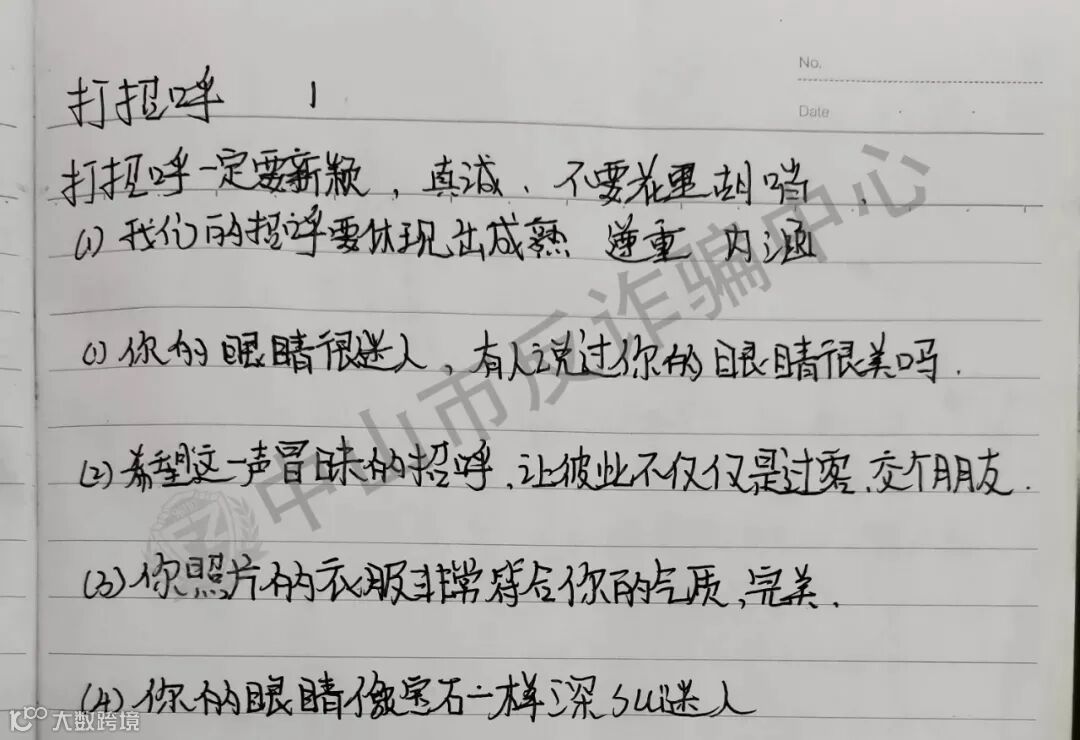 No.
Date
打招呼 1
打招呼一定要新颖，真诚、不要花里胡哨．
(1) 我们的招呼要体现出成熟 莲重 内涵
(1) 你的眼睛很迷人，有人说过你的眼睛很美吗．
(2) 希望这一声冒昧的招呼，让彼此不仅仅是过客、交个朋友．
(3) 你照片的衣服非常符合你的气质，完美．
(4) 你的眼睛像宝石一样深SU迷人
中山市反诈骗中心
大数跨境